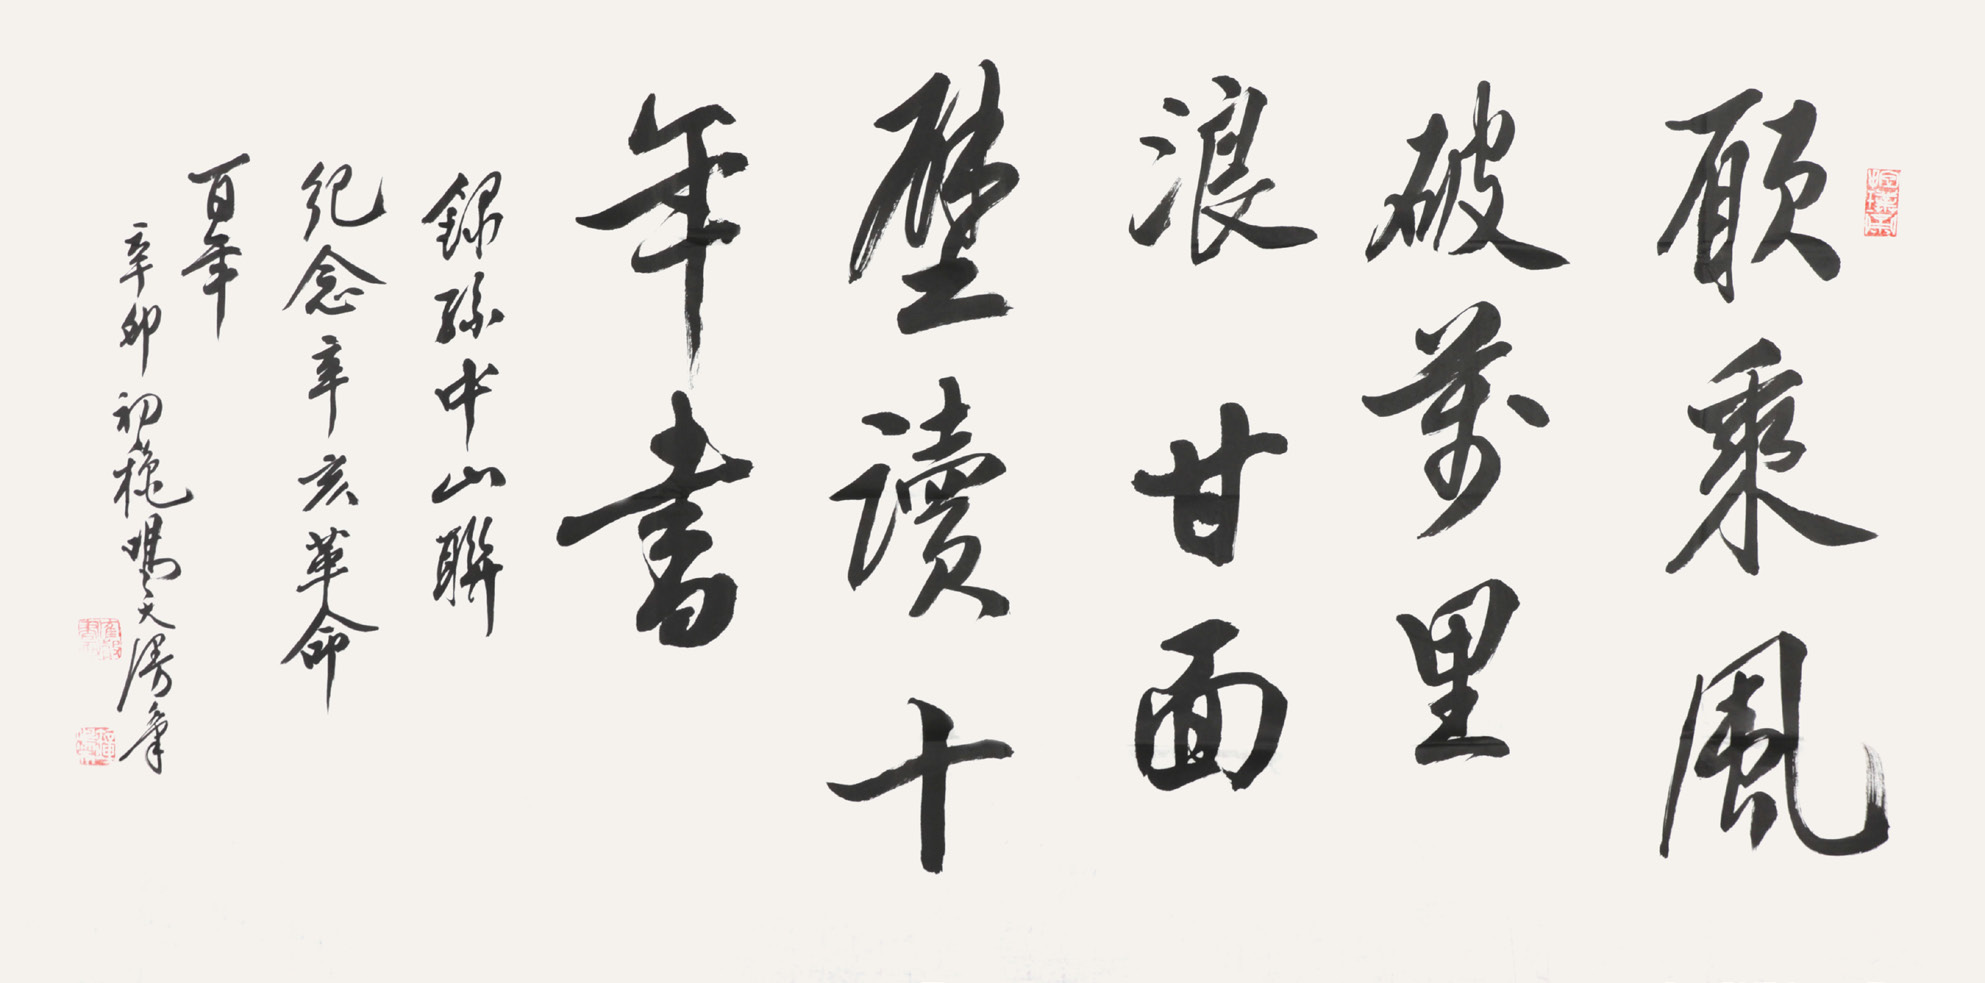 願乘風
破萬里
浪甘面
壁讀十
年書
錄孫中山聯
紀念辛亥革命
百年
辛卯初秋